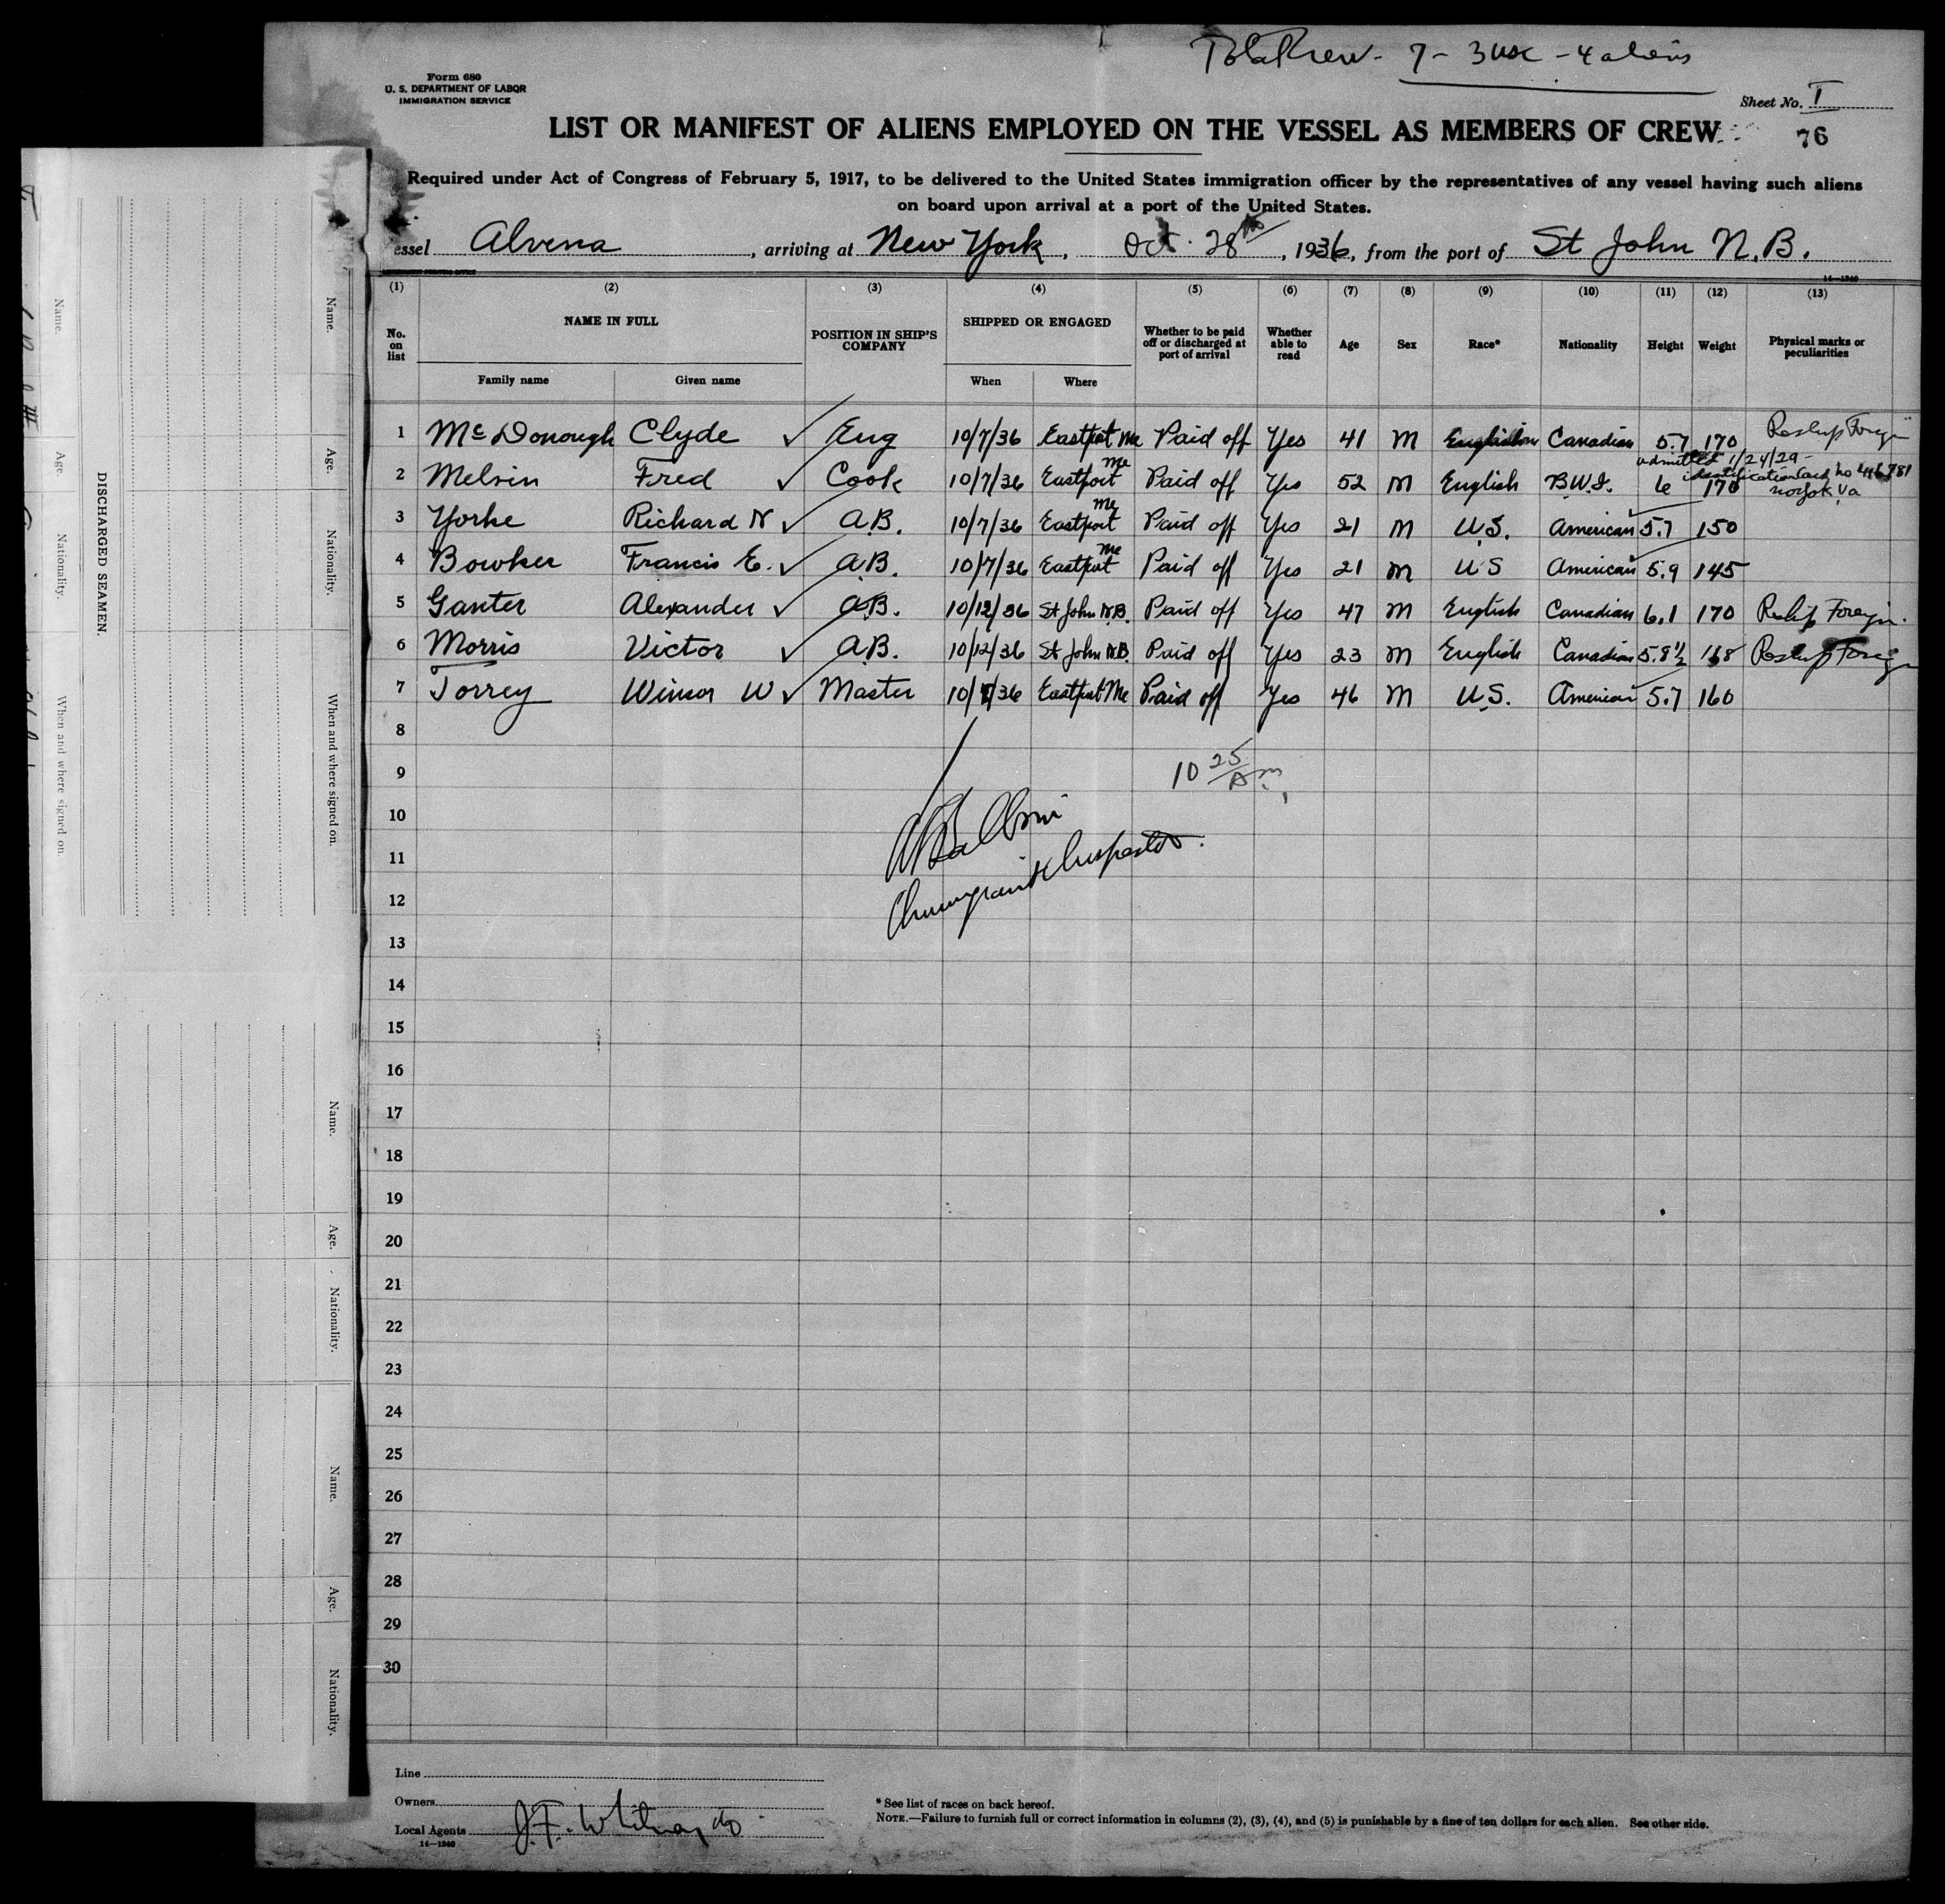 Total Crew - 7 - 3 USC - 4 aliens
Form 680
U. S. DEPARTMENT OF LABOR
IMMIGRATION SERVICE
Sheet No. I
LIST OR MANIFEST OF ALIENS EMPLOYED ON THE VESSEL AS MEMBERS OF CREW
76
Required under Act of Congress of February 5, 1917, to be delivered to the United States immigration officer by the representatives of any vessel having such aliens
on board upon arrival at a port of the United States.
essel Alvena, arriving at New York, Oct. 28th, 1936, from the port of St John N.B.
14—1240
(1) (2) (3) (4) (5) (6) (7) (8) (9) (10) (11) (12) (13)
No. on list NAME IN FULL POSITION IN SHIP'S COMPANY SHIPPED OR ENGAGED Whether to be paid off or discharged at port of arrival Whether able to read Age Sex Race* Nationality Height Weight Physical marks or peculiarities
Family name Given name When Where
1 McDonough Clyde ✓ Eng 10/7/36 Eastport Me Paid off Yes 41 M English Canadian 5.7 170 Reship Foreign
admitted 1/24/29 -
identification Card No
2 Melvin Fred ✓ Cook 10/7/36 Eastport Me Paid off Yes 52 M English B.W.I. 6 170 Norfolk Va
3 Yorke Richard N ✓ A.B. 10/7/36 Eastport Me Paid off Yes 21 M U.S. American 5.7 150
4 Bowker Francis E. ✓ A.B. 10/7/36 Eastport Me Paid off Yes 21 M U S American 5.9 145
5 Ganter Alexander ✓ A.B. 10/12/36 St John N.B. Paid off Yes 47 M English Canadian 6.1 170 Reship Foreign.
6 Morris Victor ✓ A.B. 10/12/36 St John N.B. Paid off Yes 23 M English Canadian 5.8½ 168 Reship Foreign
7 Torrey Winsor W ✓ Master 10/7/36 Eastport Me Paid off Yes 46 M U.S. American 5.7 160
8
9
10 25 Am.
10
11
Immigrant Inspector.
12
13
14
15
16
17
18
19
20
21
22
23
24
25
26
27
28
29
30
Line
Owners
Local Agents J.F. Whitney Co
14—1240
* See list of races on back hereof.
NOTE.—Failure to furnish full or correct information in columns (2), (3), (4), and (5) is punishable by a fine of ten dollars for each alien. See other side.
DISCHARGED SEAMEN.
Name.
Age.
Nationality.
When and where signed on.
Name.
Age.
Nationality.
When and where signed on.
Name.
Age.
Nationality.
Name.
Age.
Nationality.